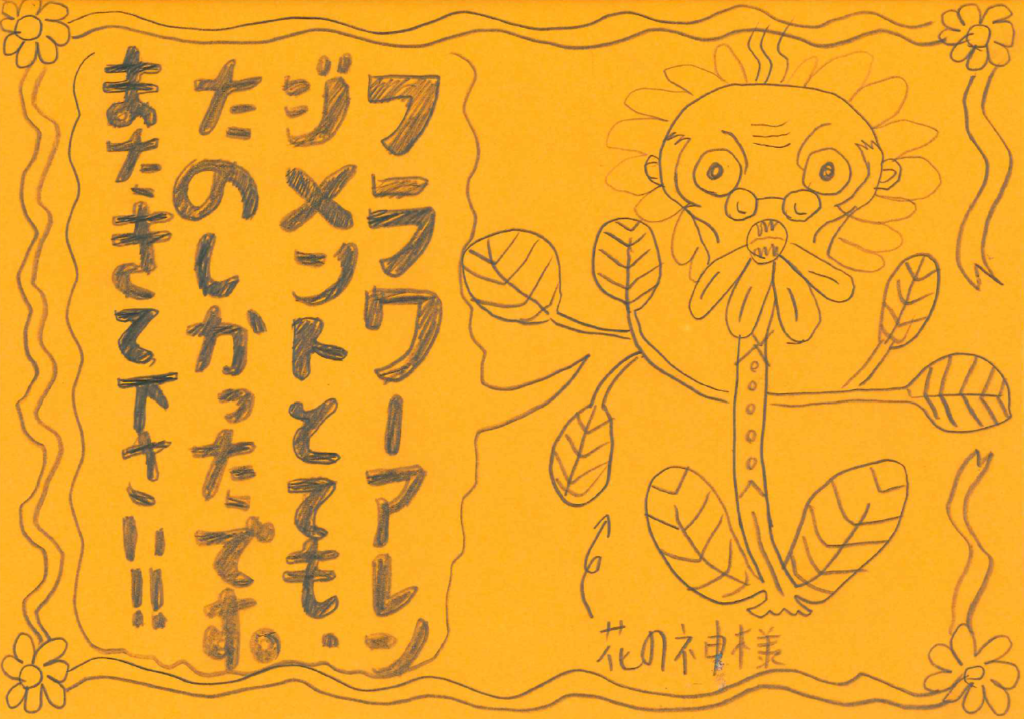 フラワーアレン
ジメントとても、
たのしかったです。
またきて下さい!!
花の神様